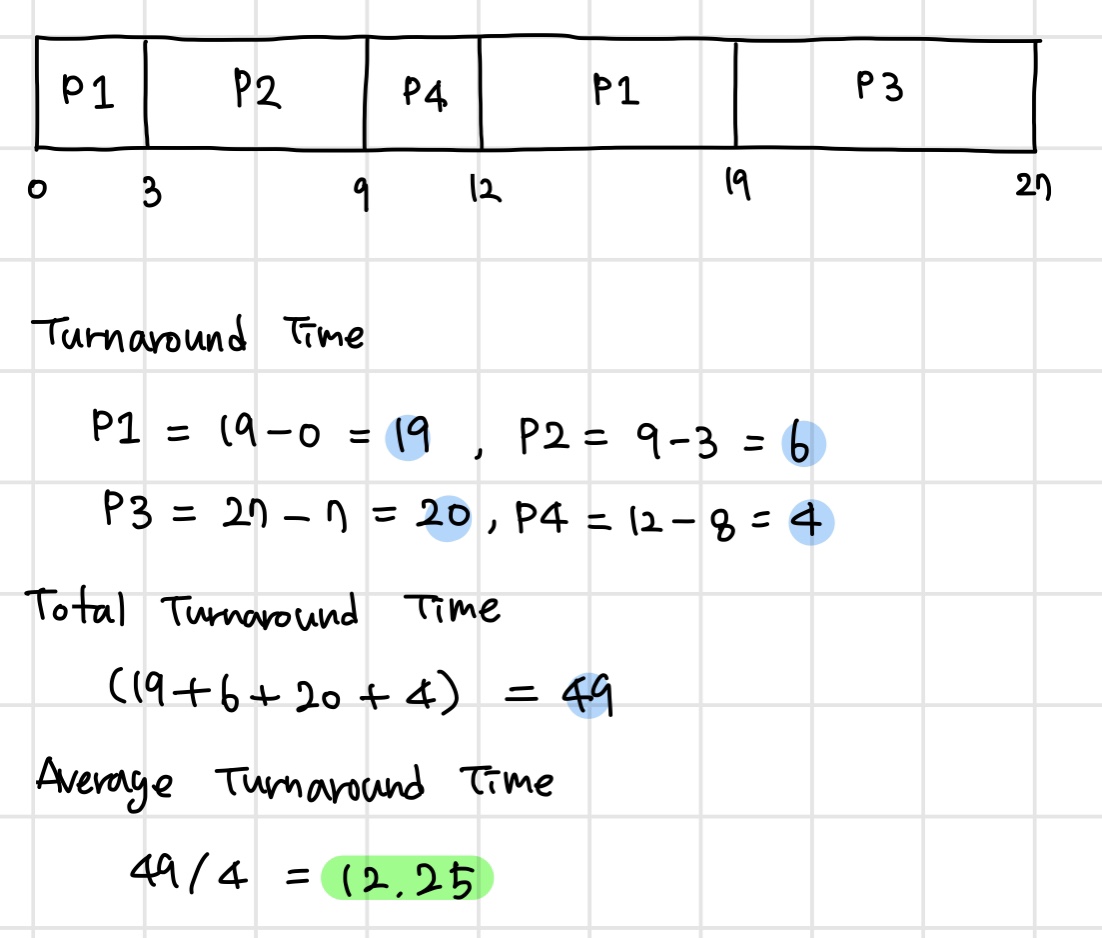 P1 P2 P4 P1 P3
0 3 9 12 19 27
Turnaround Time
P1 = 19-0 = 19 , P2 = 9-3 = 6
P3 = 27-7 = 20, P4 = 12-8 = 4
Total Turnaround Time
(19+6+20+4) = 49
Average Turnaround Time
49/4 = 12.25